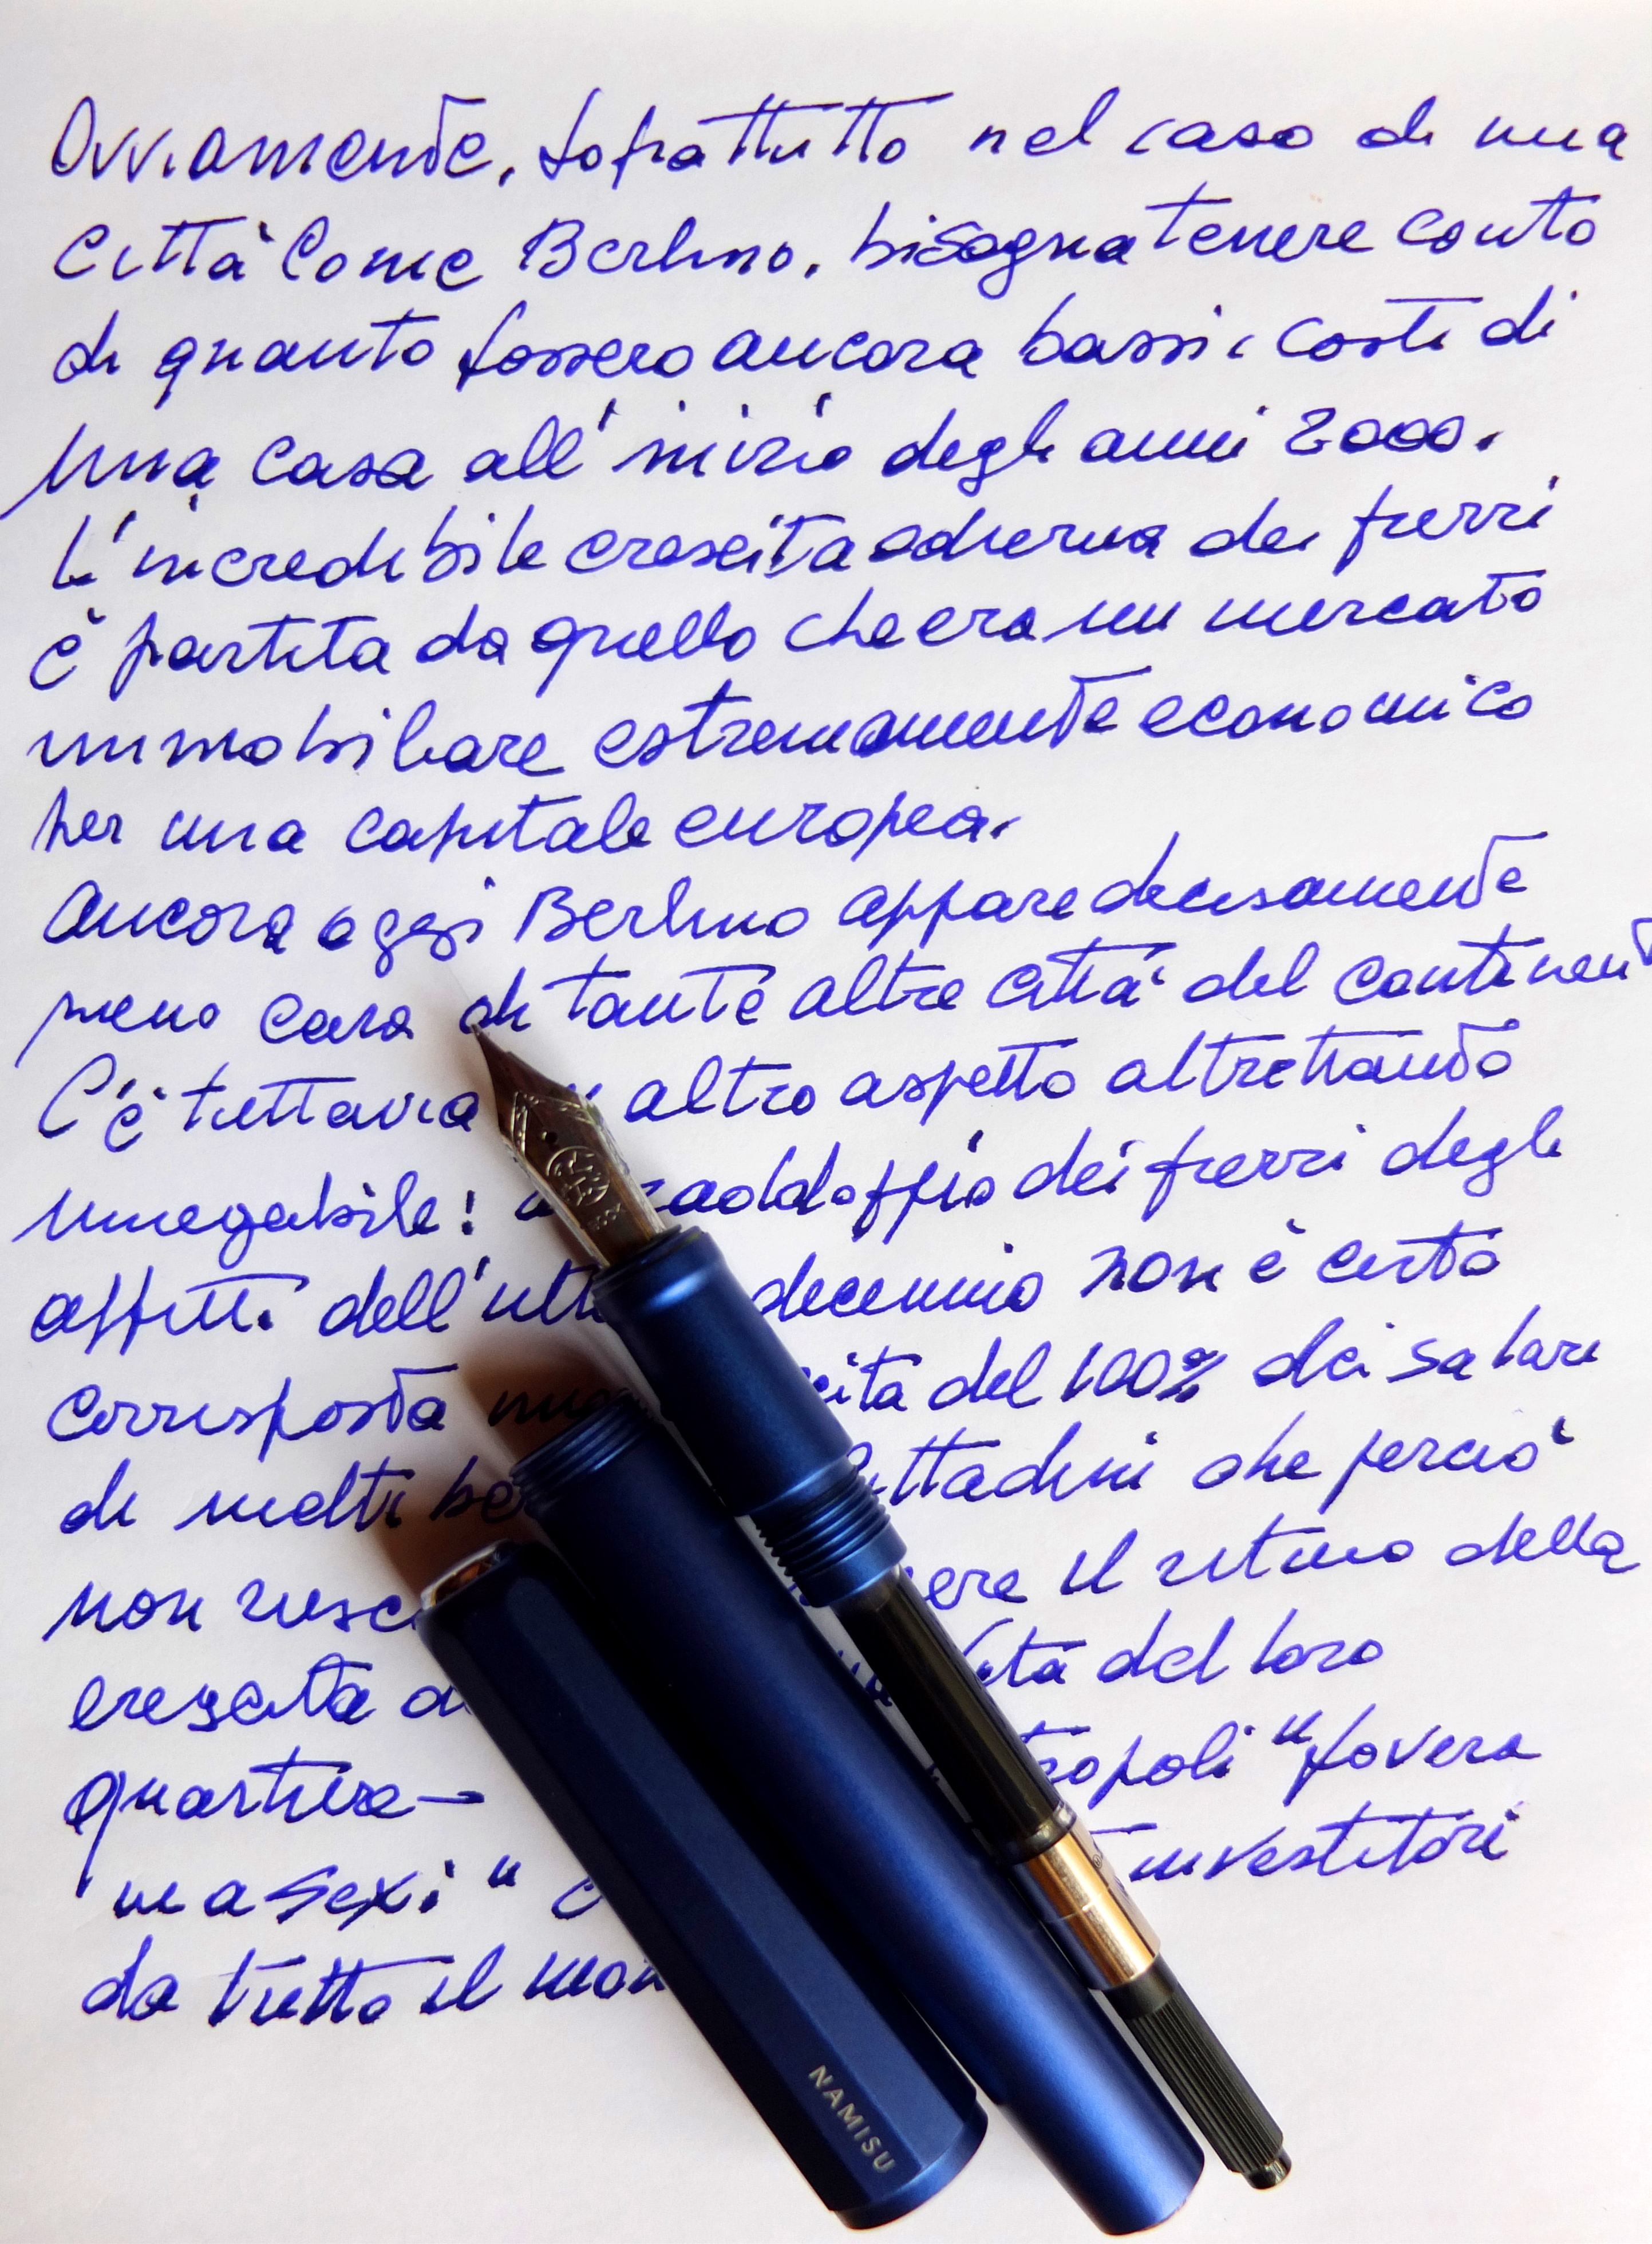 Ovviamente, soprattutto nel caso di una
Città come Berlino, bisogna tenere conto
di quanto fossero ancora bassi i costi di
una casa all'inizio degli anni 2000.
L'incredibile crescita odierna dei prezzi
è partita da quello che era un mercato
immobiliare estremamente economico
per una capitale europea.
Ancora oggi Berlino appare decisamente
meno cara di tante altre città del continent
C'è tuttavia altro aspetto altrettanto
innegabile: raddoppio dei prezzi degli
affitti dell'ulti decennio non è certo
corrisposta cita del 100% dei salari
di molti be ittadini che perciò
non riesc nere il ritmo della
crescita d ita del loro
quartiere - tropoli "povera
ma sexi" investitori
da tutto il mon
NAMISU